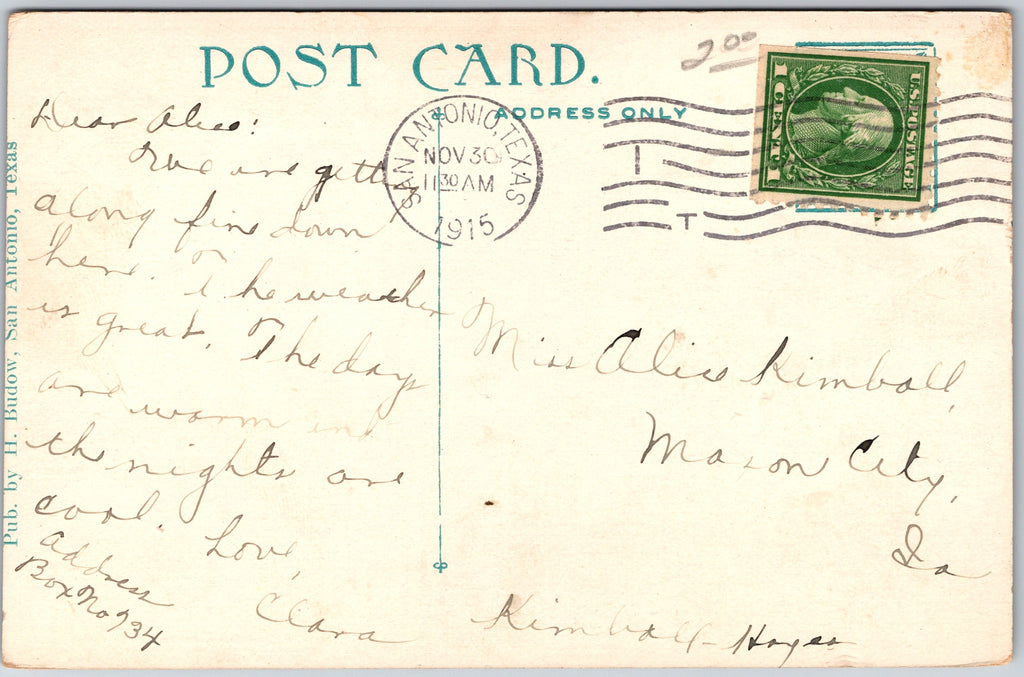 POST CARD.
2.00
ADDRESS ONLY
SAN ANTONIO, TEXAS
NOV 30
11 30 AM
1915
T
U.S. POSTAGE
1 CENT 1
Dear Alice:
We are getting
along fine down
here. The weather
is great. The days
are warm and
the nights are
cool. Love,
Clara
address
Box No 734
Miss Alice Kimball,
Mason City,
Ia
Kimball - Hayes
Pub. by H. Budow, San Antonio, Texas